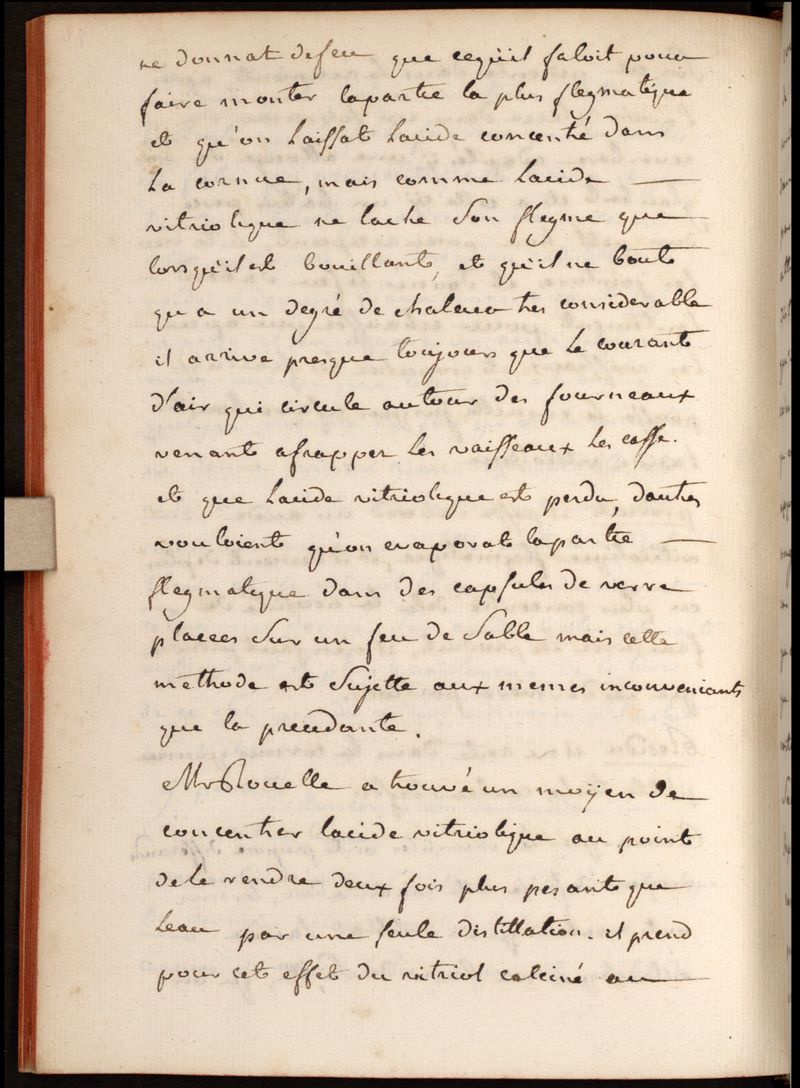 ne donnat defeu que cequ'il faloit pour
faire monter lapartie la plus flegmatique
et qu'on laissat lacide concentré dans
la cornue, mais comme lacide
vitriolique ne lache son flegme que
lorsqu'il est bouillant, et qu'il ne bout
qu a un degré de chaleur tres considerable
il arrive presque toujours que le courant
d'air qui circule autour des fourneaux
venant afrapper les vaisseaux les casse.
et que lacide vitriolique est perdu, dautres
vouloient qu'on evaporat lapartie
flegmatique dans des capsules de verre
placées sur un feu de sable mais cette
methode est sujette aux memes inconveniants
que la precedante.
Mr Rouelle a trouvé un moyen de
concentrer lacide vitriolique au point
dele rendre deux fois plus pesant que
leau par une seule distillation. il prend
pour cet effet du vitriol calciné au